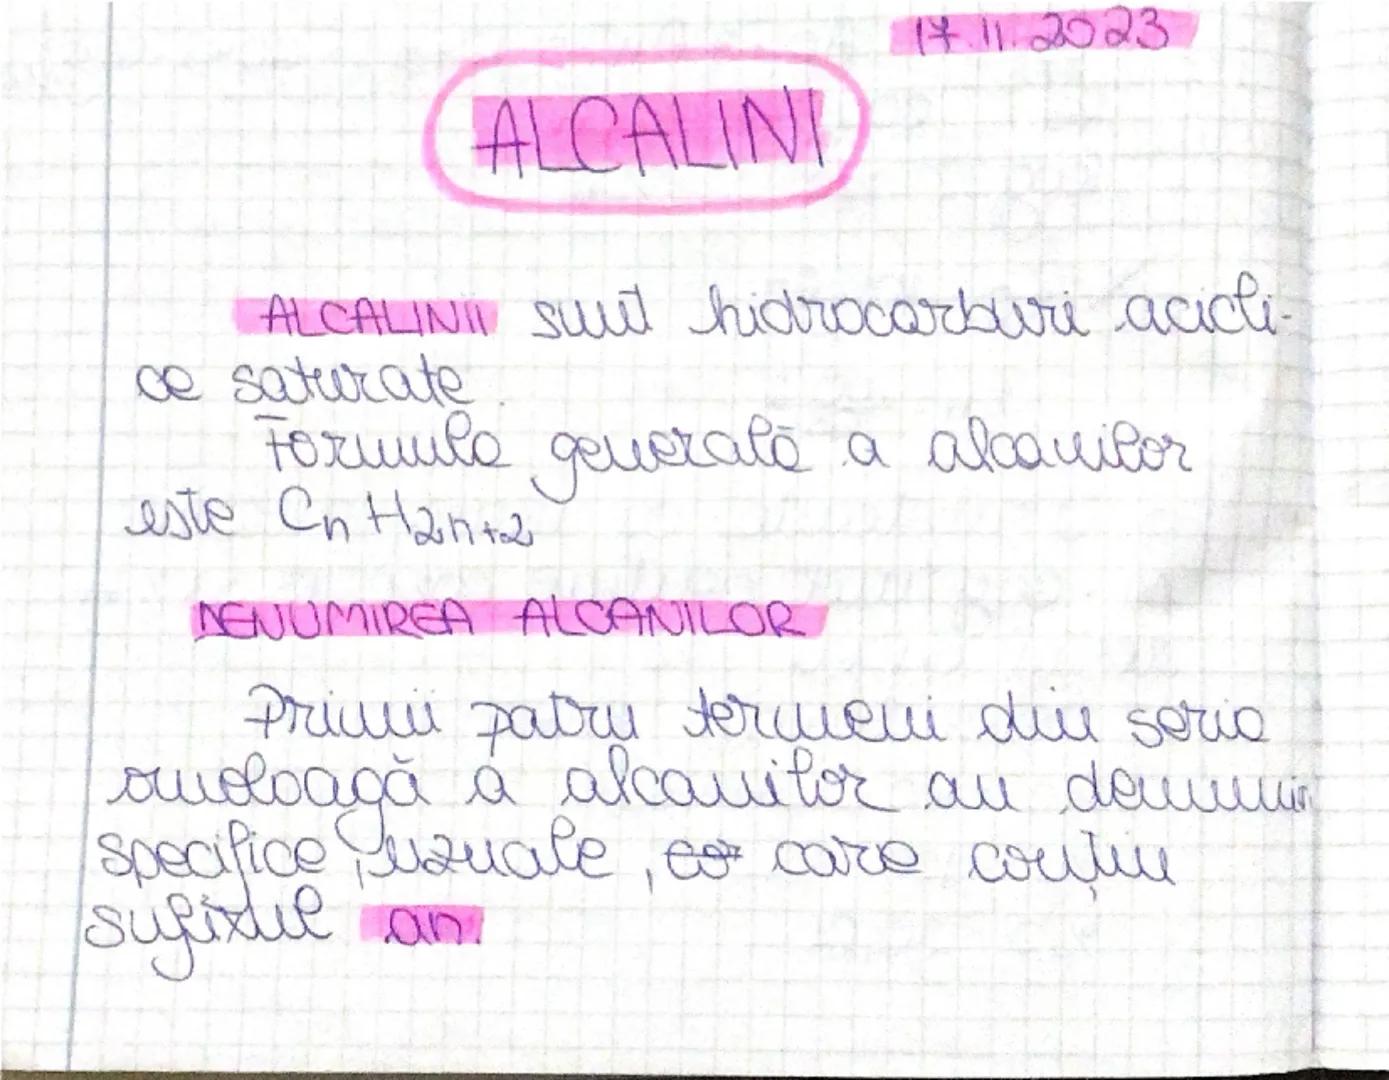 17.11.2023
ALCALINI
ALCALINII sunt hidrocarburi acicli-
ce saturate.
Formula generală a alcanilor
este CnH2n+2
DENUMIREA ALCANILOR
Primii patru termeni din seria
omoloagă a alcanilor au denumir
specifice, uzuale, car care conțin
sufixul an.